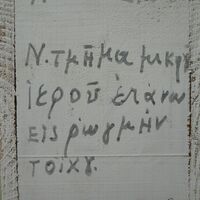 Ν. τμῆμα μικρȣ͂
ἱεροῦ ἐπάνω
εἰς ρωγμὴν
τοίχȣ.